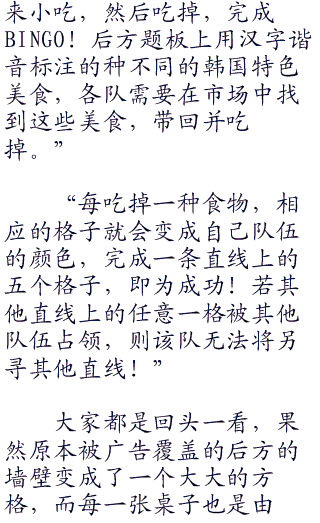 来小吃，然后吃掉，完成
BINGO！后方题板上用汉字谐
音标注的种不同的韩国特色
美食，各队需要在市场中找
到这些美食，带回并吃
掉。”
“每吃掉一种食物，相
应的格子就会变成自己队伍
的颜色，完成一条直线上的
五个格子，即为成功！若其
他直线上的任意一格被其他
队伍占领，则该队无法将另
寻其他直线！”
大家都是回头一看，果
然原本被广告覆盖的后方的
墙壁变成了一个大大的方
格，而每一张桌子也是由